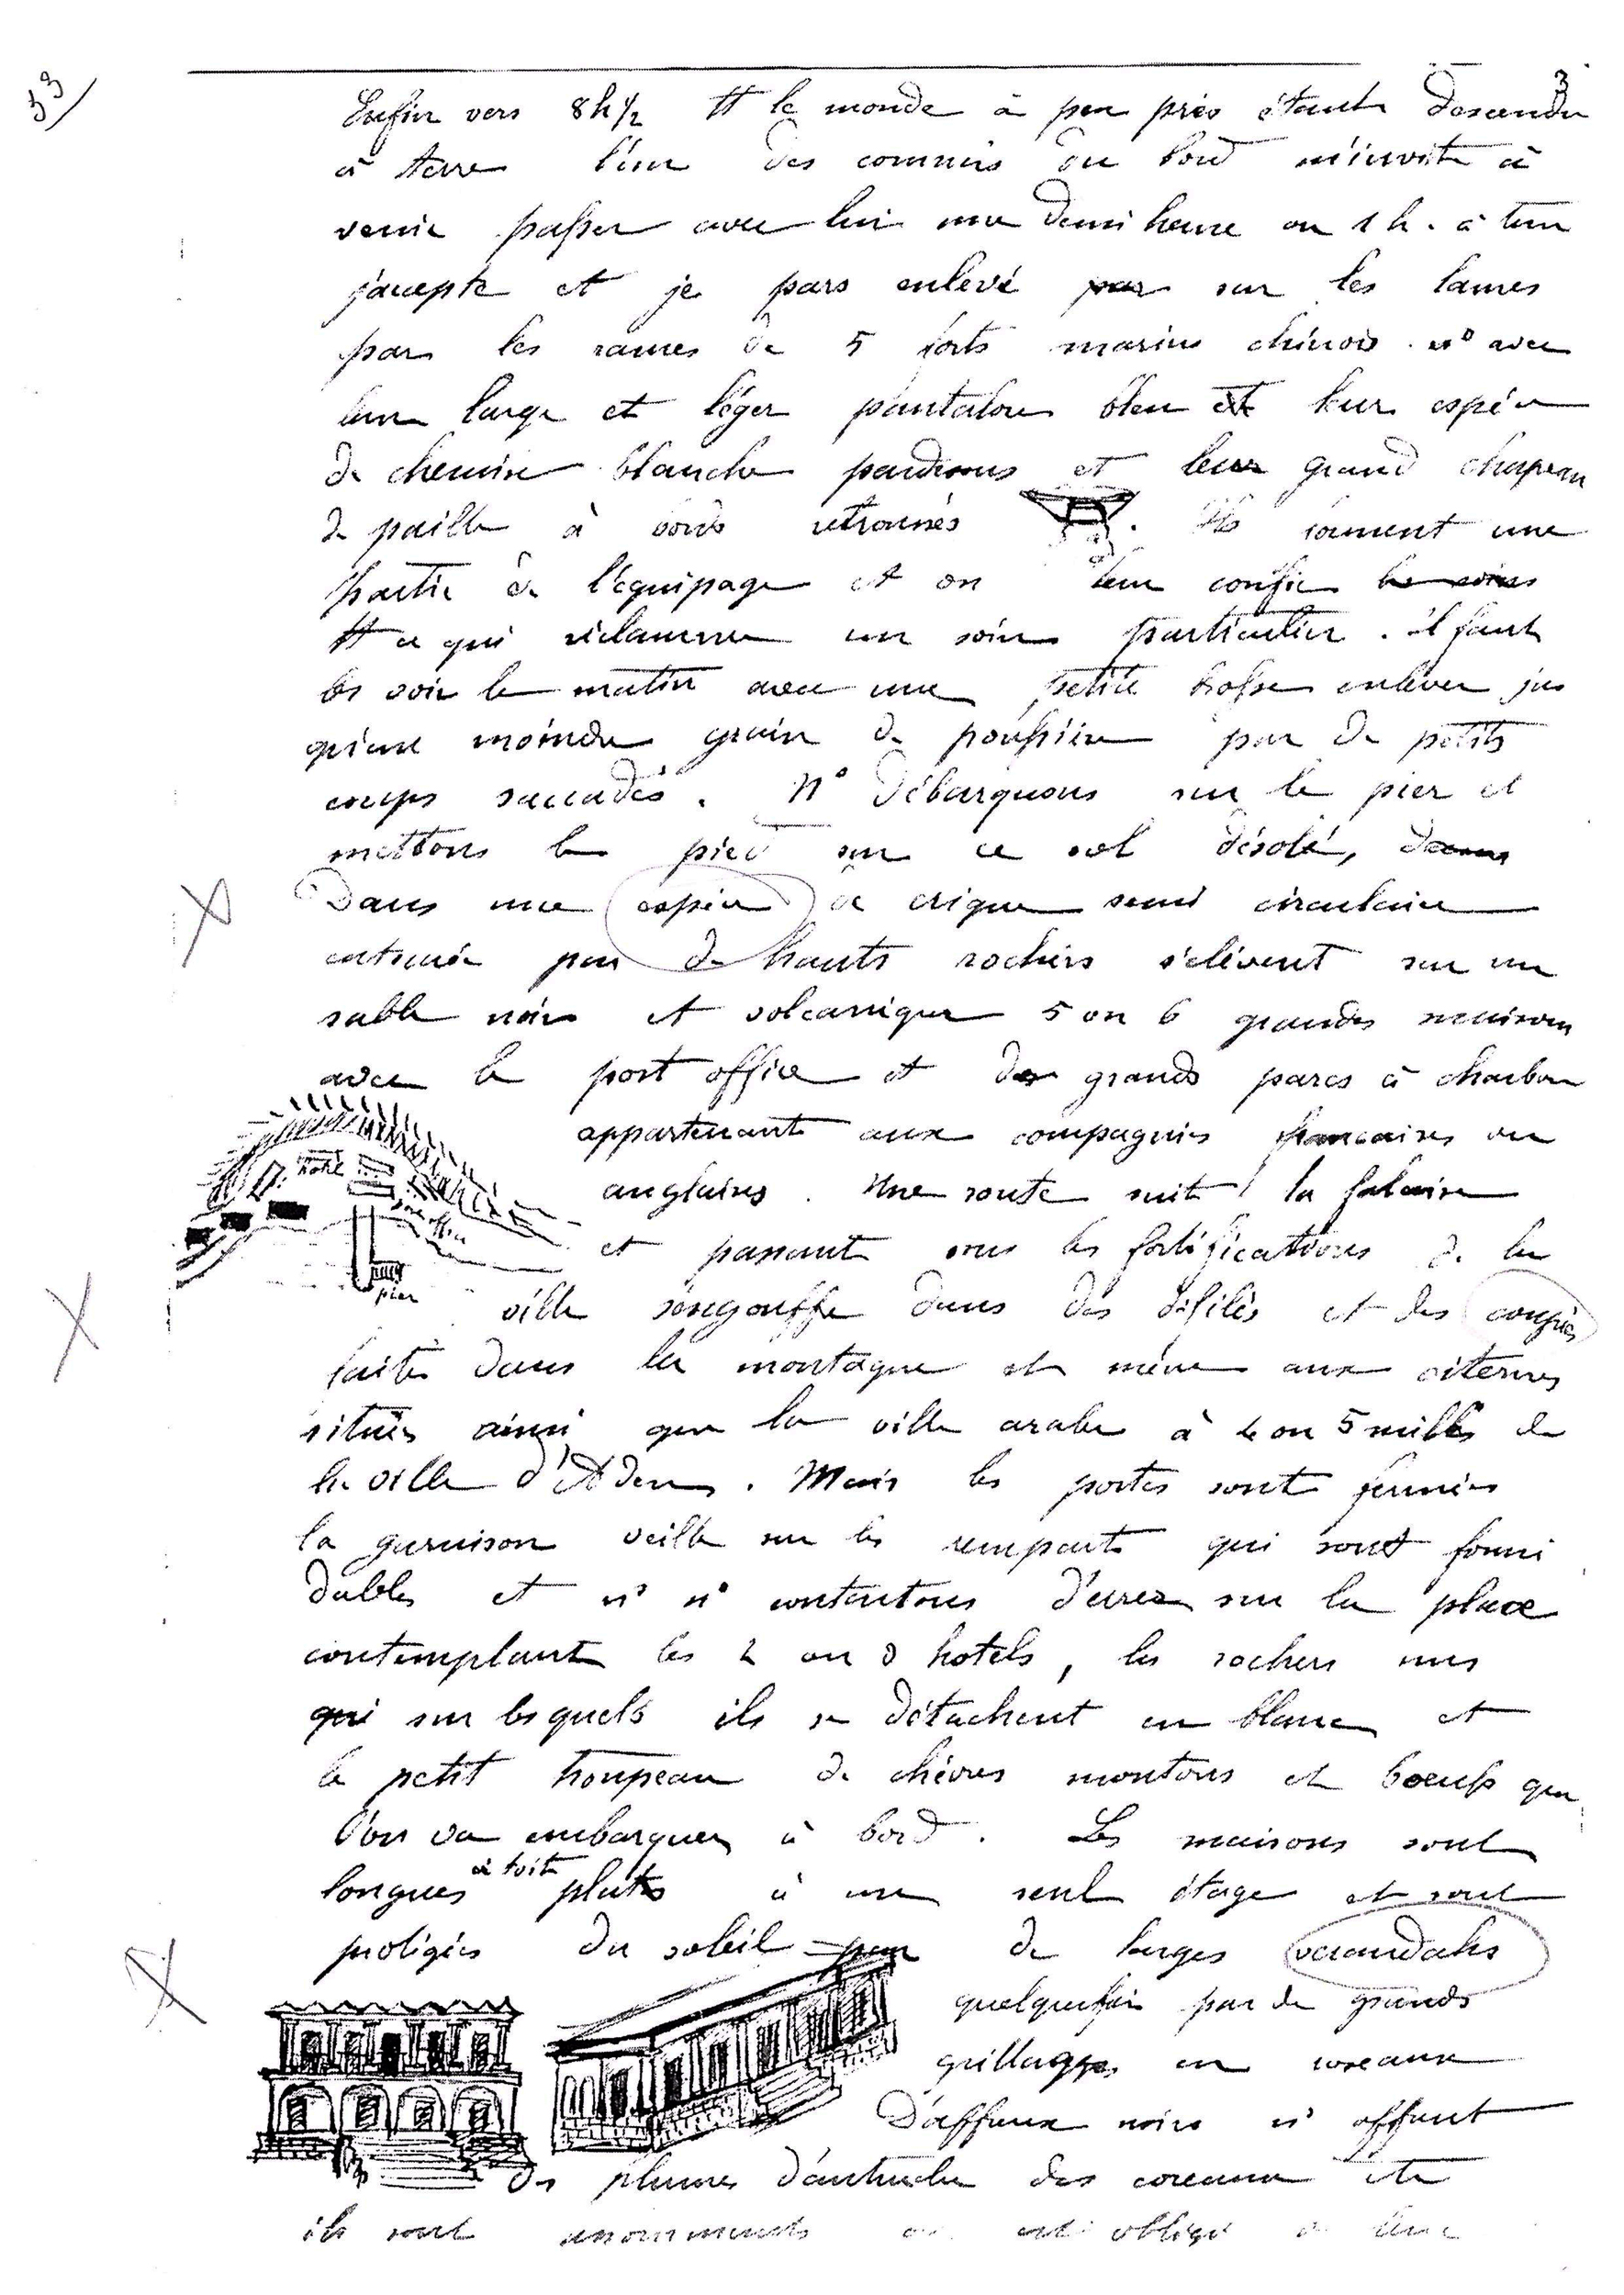 33
3
Enfin vers 8h 1/2 tt le monde à peu près étant descendu
à terre l'un des commis du bord m'invite à
venir passer avec lui une demi heure ou 1 h. à terre
j'accepte et je pars enlevé par sur les lames
par les rames de 5 forts marins chinois. avec
leur large et léger pantalon bleu et leur espèce
de chemise blanche pardessus et leur grand chapeau
de paille à bords retournés. Ils forment une
partie de l'équipage et on leur confie le soin
tt ce qui réclame un soin particulier. il faut
les voir le matin avec une petite brosse enlever jus
qu'au moindre grain de poussière par de petits
coups saccadés. Ns débarquons sur le pier et
mettons le pied sur ce sol désolé, dans
Dans une espèce de crique semi circulaire
entourée par de hauts rochers s'élèvent sur un
sable noir et volcanique 5 ou 6 grandes maisons
avec le port office et des grands parcs à charbon
appartenant aux compagnies françaises ou
anglaises. Une route suit la falaise
et passant sous les fortifications de la
hotel
port office
pier
ville s'engouffre dans des défilés et des coupées
faites dans la montagne et mène aux citernes
situées ainsi que la ville arabe à 4 ou 5 milles de
la ville d'Aden. Mais les portes sont fermées
la garnison veille sur les remparts qui sont formi
dables et ns ns contentons d'errer sur la place
contemplant les 2 ou 3 hotels, les rochers nus
qui sur lesquels ils se détachent en blanc et
le petit troupeau de chèvres moutons et boeufs que
l'on va embarquer à bord. Les maisons sont
longues à toits plats à un seul étage et sont
protégées du soleil par de larges verandahs
quelquefois par de grands
grillages en roseaux
D'affreux noirs ns offrent
des plumes d'autruche des coreaux etc
ils sont assommants on est obligé de leur